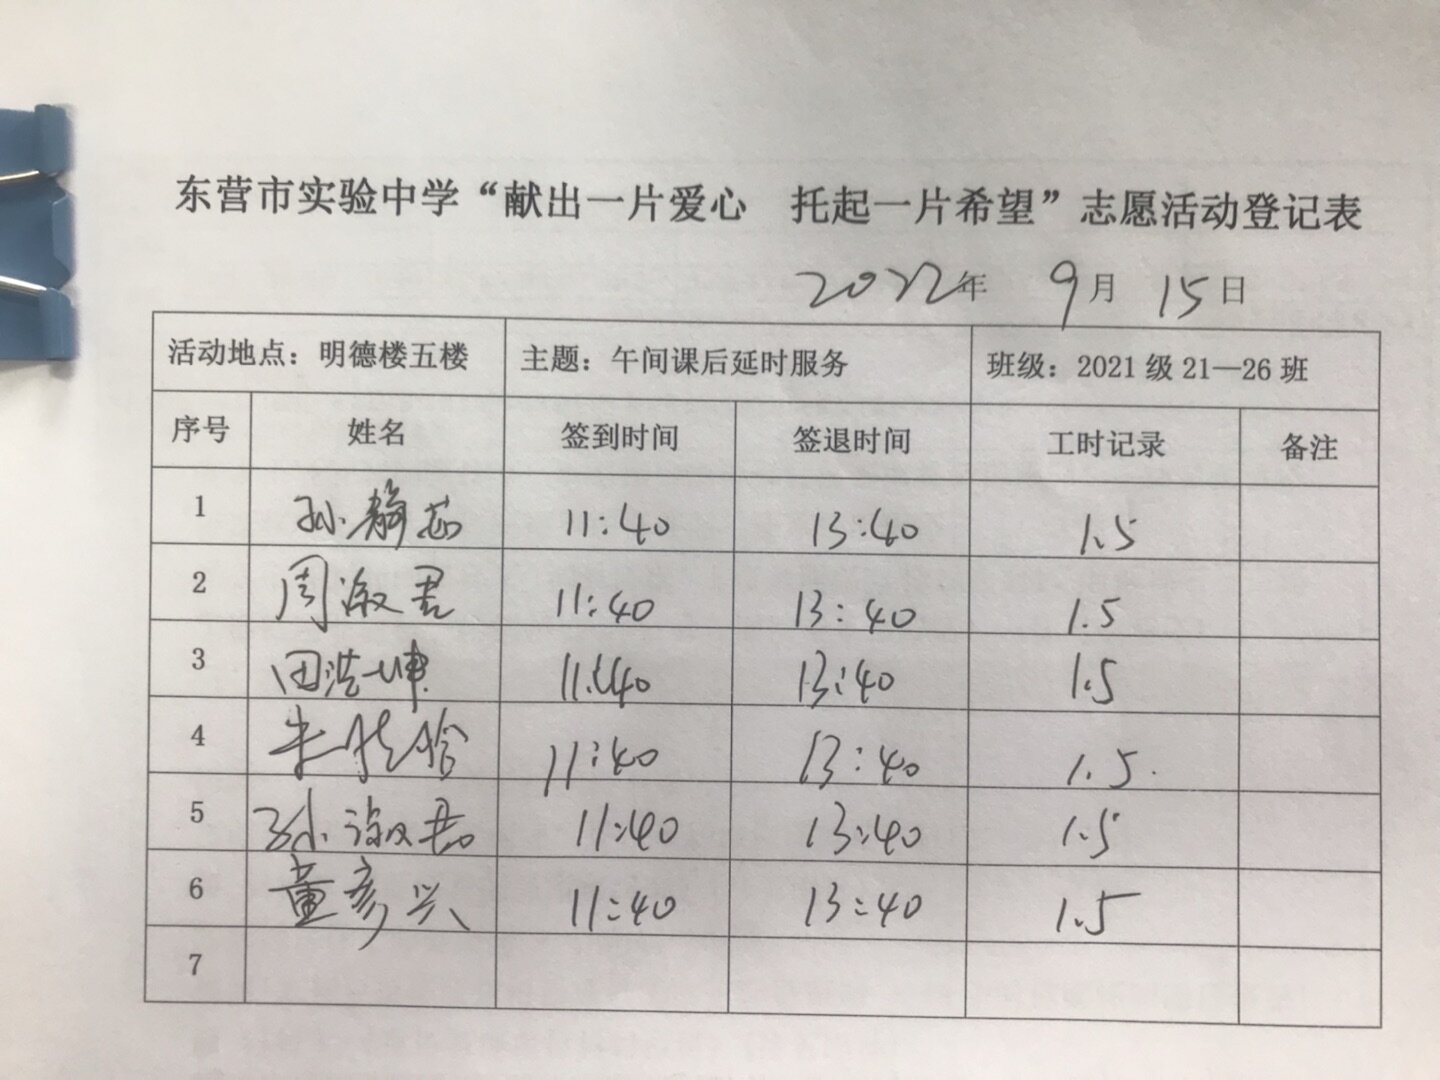 东营市实验中学“献出一片爱心 托起一片希望”志愿活动登记表
2022年 9月 15日
活动地点：明德楼五楼 主题：午间课后延时服务 班级：2021级21—26班
序号 姓名 签到时间 签退时间 工时记录 备注
1 孙静芯 11:40 13:40 1.5
2 周淑君 11:40 13:40 1.5
3 田浩坤 11:40 13:40 1.5
4 11:40 13:40 1.5
5 孙淑君 11:40 13:40 1.5
6 董彦兴 11:40 13:40 1.5
7